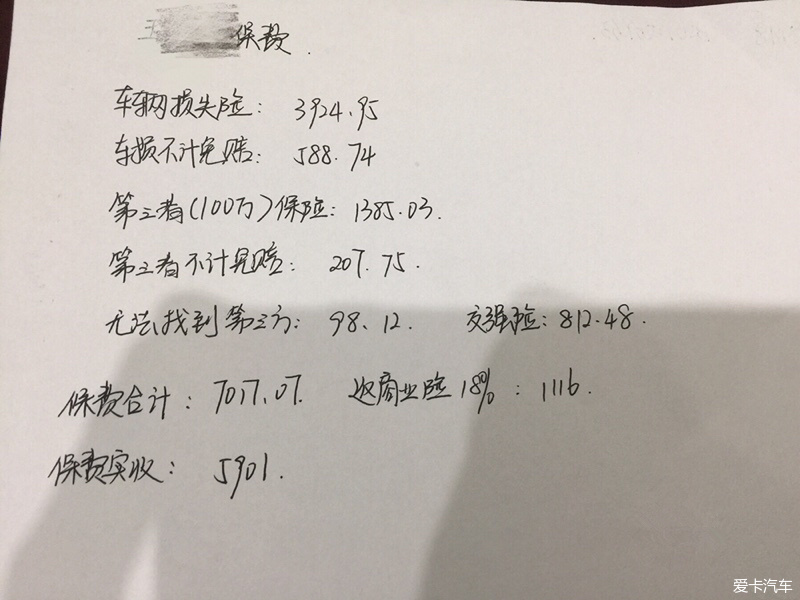 保费.
车辆损失险: 3924.95
车损不计免赔: 588.74
第三者(100万)保险: 1385.03.
第三者不计免赔: 207.75.
无法找到第三方: 98.12. 交强险: 812.48.
保费合计: 7017.07. 返商业险18%: 1116.
保费实收: 5901.
爱卡汽车